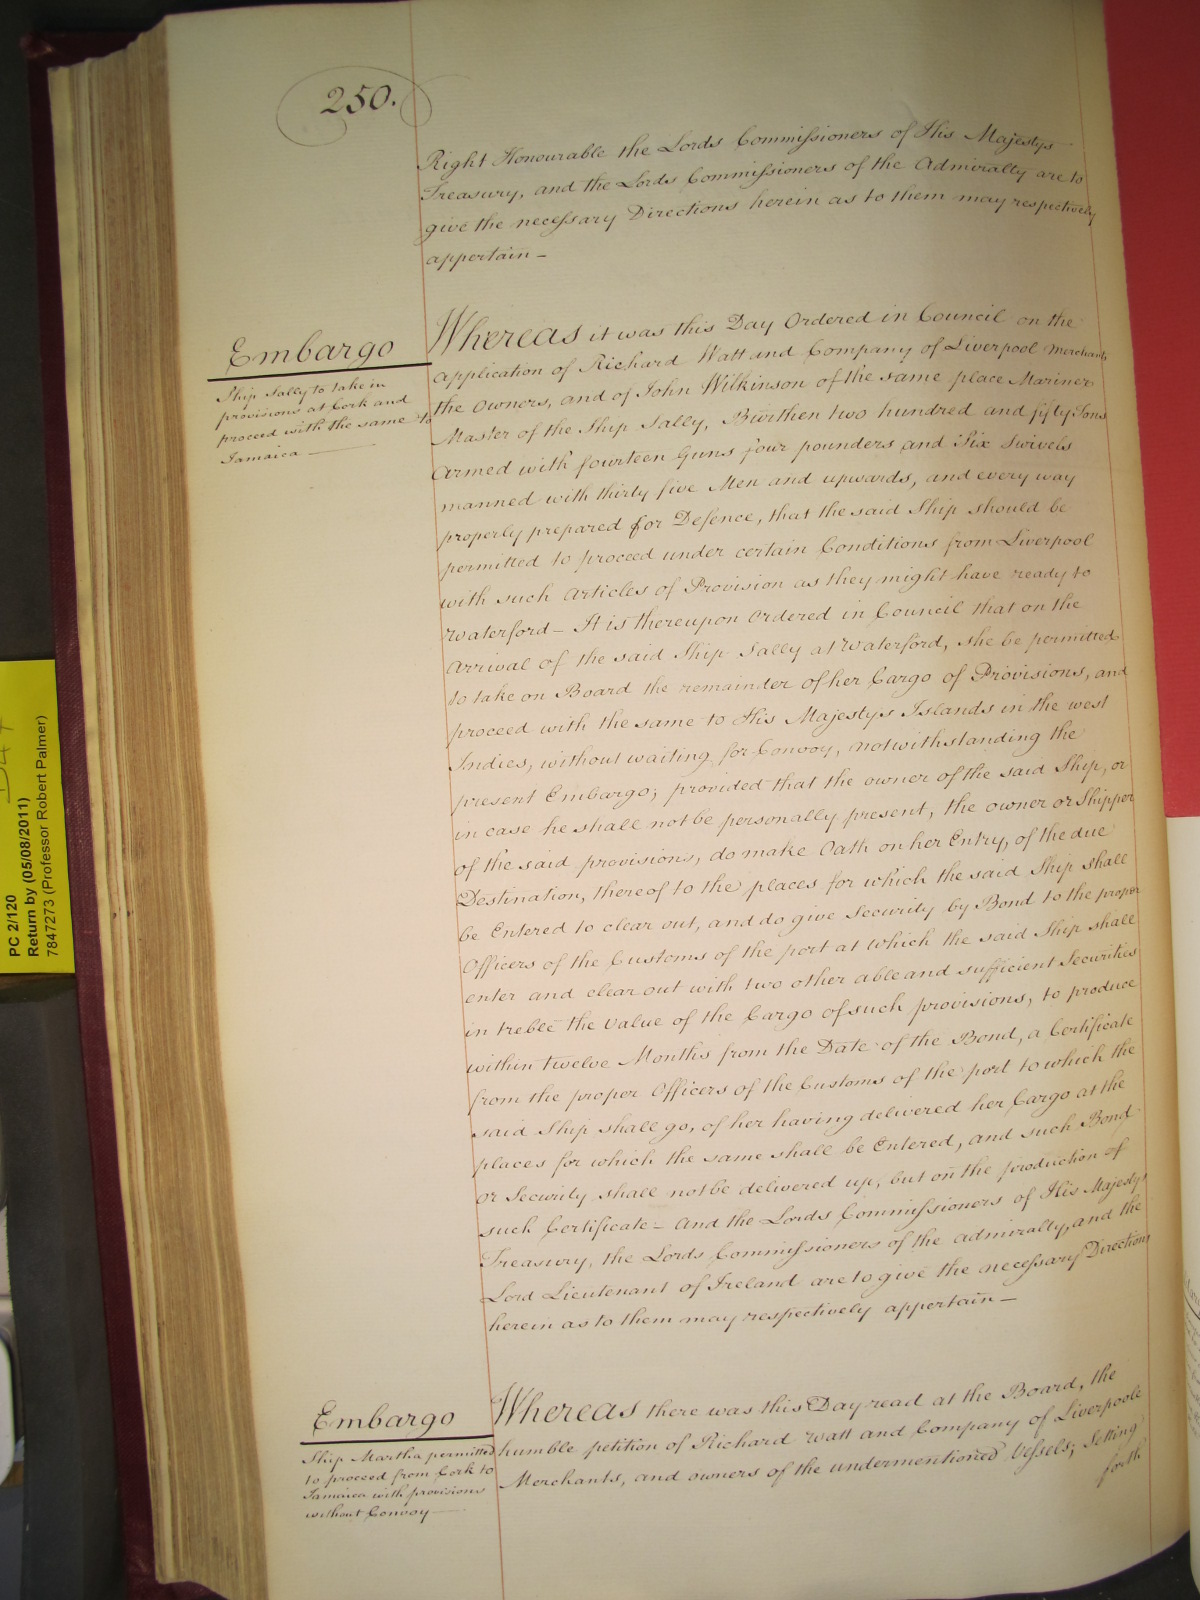 250.
Right Honourable the Lords Commissioners of His Majestys
Treasury, and the Lords Commissioners of the Admiralty are to
give the necessary Directions herein as to them may respectively
appertain –
Embargo
Ship Sally to take in
provisions at Cork and
proceed with the same to
Jamaica –
Whereas it was this Day Ordered in Council on the
application of Richard Watt and Company of Liverpool Merchants
the Owners, and of John Wilkinson of the same place Mariner
Master of the Ship Sally, Burthen two hundred and fifty Tons
Armed with fourteen Guns four pounders and Six Swivels
manned with thirty five Men and upwards, and every way
properly prepared for Defence, that the said Ship should be
permitted to proceed under certain Conditions from Liverpool
with such Articles of Provision as they might have ready to
Waterford – It is thereupon Ordered in Council that on the
Arrival of the said Ship Sally at Waterford, she be permitted
to take on Board the remainder of her Cargo of Provisions, and
proceed with the same to His Majestys Islands in the west
Indies, without waiting for Convoy, notwithstanding the
present Embargo; provided that the owner of the said Ship, or
in case he shall not be personally present, the owner or Shipper
of the said provisions, do make Oath on her Entry, of the due
Destination, thereof to the places for which the said Ship shall
be Entered to clear out, and do give Security by Bond to the proper
Officers of the Customs of the port at which the said Ship shall
enter and clear out with two other able and sufficient Securities
in treble the Value of the Cargo of such provisions, to produce
within twelve Months from the Date of the Bond, a Certificate
from the proper Officers of the Customs of the port to which the
said Ship shall go, of her having delivered her Cargo at the
places for which the same shall be Entered, and such Bond
or Security shall not be delivered up, but on the production of
such Certificate – And the Lords Commissioners of His Majestys
Treasury, the Lords Commissioners of the Admiralty, and the
Lord Lieutenant of Ireland are to give the necessary Directions
herein as to them may respectively appertain –
Embargo
Ship Martha permitted
to proceed from Cork to
Jamaica with provisions
without Convoy
Whereas there was this Day read at the Board, the
humble petition of Richard Watt and Company of Liverpoole
Merchants, and owners of the undermentioned Vessels; Setting
forth
PC 2/120
Return by (05/08/2011)
7847273 (Professor Robert Palmer)